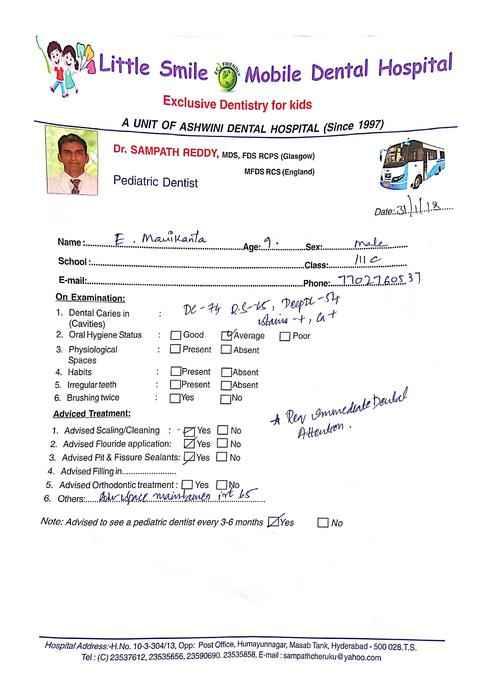 Little Smile Mobile Dental Hospital
ECO FRIENDLY
Exclusive Dentistry for kids
A UNIT OF ASHWINI DENTAL HOSPITAL (Since 1997)
Dr. SAMPATH REDDY, MDS, FDS RCPS (Glasgow)
MFDS RCS (England)
Pediatric Dentist
Date: 31/1/18
Name: E. Manikanta Age: 9. Sex: male
School: Class: III C
E-mail: Phone: 7702760537
On Examination:
1. Dental Caries in : DC-74 R.S-65, Deep DC-54
(Cavities) stains-+, Ca+
2. Oral Hygiene Status : Good Average Poor
3. Physiological : Present Absent
Spaces
4. Habits : Present Absent
5. Irregular teeth : Present Absent
6. Brushing twice : Yes No
Adviced Treatment:
* Req immediate Dental
Attention.
1. Advised Scaling/Cleaning : Yes No
2. Advised Flouride application: Yes No
3. Advised Pit & Fissure Sealants: Yes No
4. Advised Filling in
5. Advised Orthodontic treatment : Yes No
6. Others: Adv space maintainer irt 65
Note: Advised to see a pediatric dentist every 3-6 months Yes No
Hospital Address:-H.No. 10-3-304/13, Opp: Post Office, Humayunnagar, Masab Tank, Hyderabad - 500 028.T.S.
Tel : (C) 23537612, 23535656, 23590690. 23535858, E-mail : sampathcheruku@yahoo.com